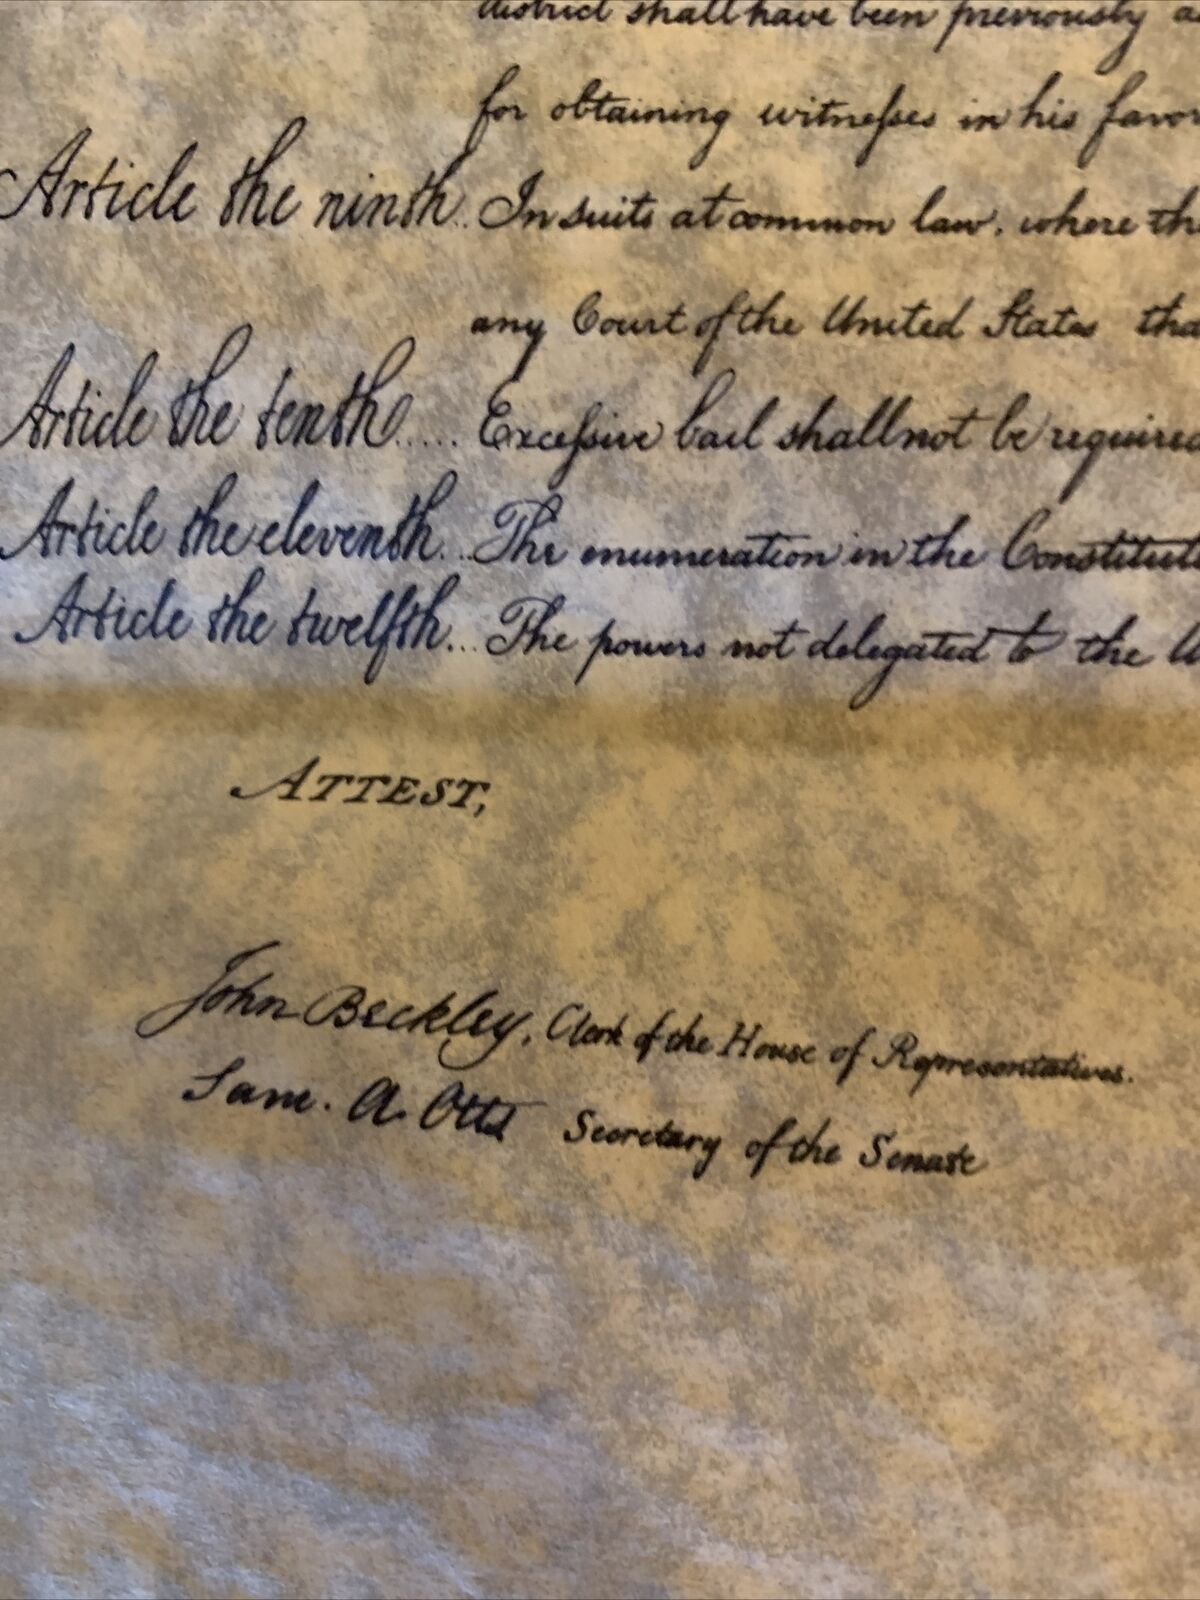 district shall have been previously
for obtaining witneſses in his favor
Article the ninth.. In suits at common law, where the
any Court of the United States tha
Article the tenth..... Exceſsive bail shall not be required
Article the eleventh... The enumeration in the Constitut
Article the twelfth... The powers not delegated to the U
ATTEST,
John Beckley, Clerk of the House of Representatives.
Sam. A. Otis Secretary of the Senate